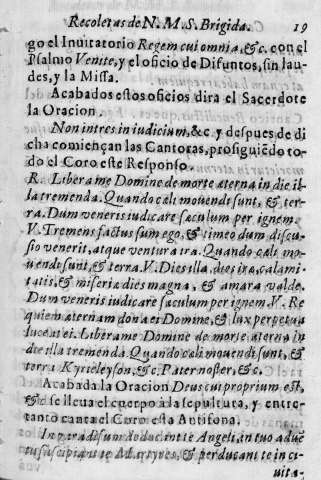 Recoletas de N. M. S. Brigida. 19
go el Inuitatorio Regem cui omnia, &c. con el
Psalmo Venite, y el oficio de Difuntos, sin lau-
des, y la Missa.
Acabados estos oficios dira el Sacerdote
la Oracion.
Non intres in iudicium, &c. y despues de di
cha comiençan las Cantoras, prosiguiēdo to-
do el Coro este Responso.
R. Libera me Domine de morte æterna in die il-
la tremenda. Quando cæli mouendi sunt, & ter-
ra. Dum veneris iudicare sæculum per ignem.
V. Tremens factus sum ego, & timeo dum discu-
sio venerit, atque ventura ira. Quando cæli mo-
uendi sunt, & terra. V. Dies illa, dies iræ, calami-
tatis, & miseriæ dies magna, & amara valde.
Dum veneris iudicare sæculum per ignem. V. Re
quiem æternam dona ei Domine, & lux perpetua
luceat ei. Libera me Domine de morte æterna in
die illa tremenda Quando cæli mouendi sunt, &
terra Kyrieleyson, &c. Pater noster, &c.
Acabada la Oracion Deus cui proprium est,
& se lleua el cuerpo à la sepultura, y entre-
tanto canta el Coro esta Antifona.
In paradisum deducant te Angeli, in tuo aduē
tu suscipiant te Martyres, & perducant te in ci-
uita-